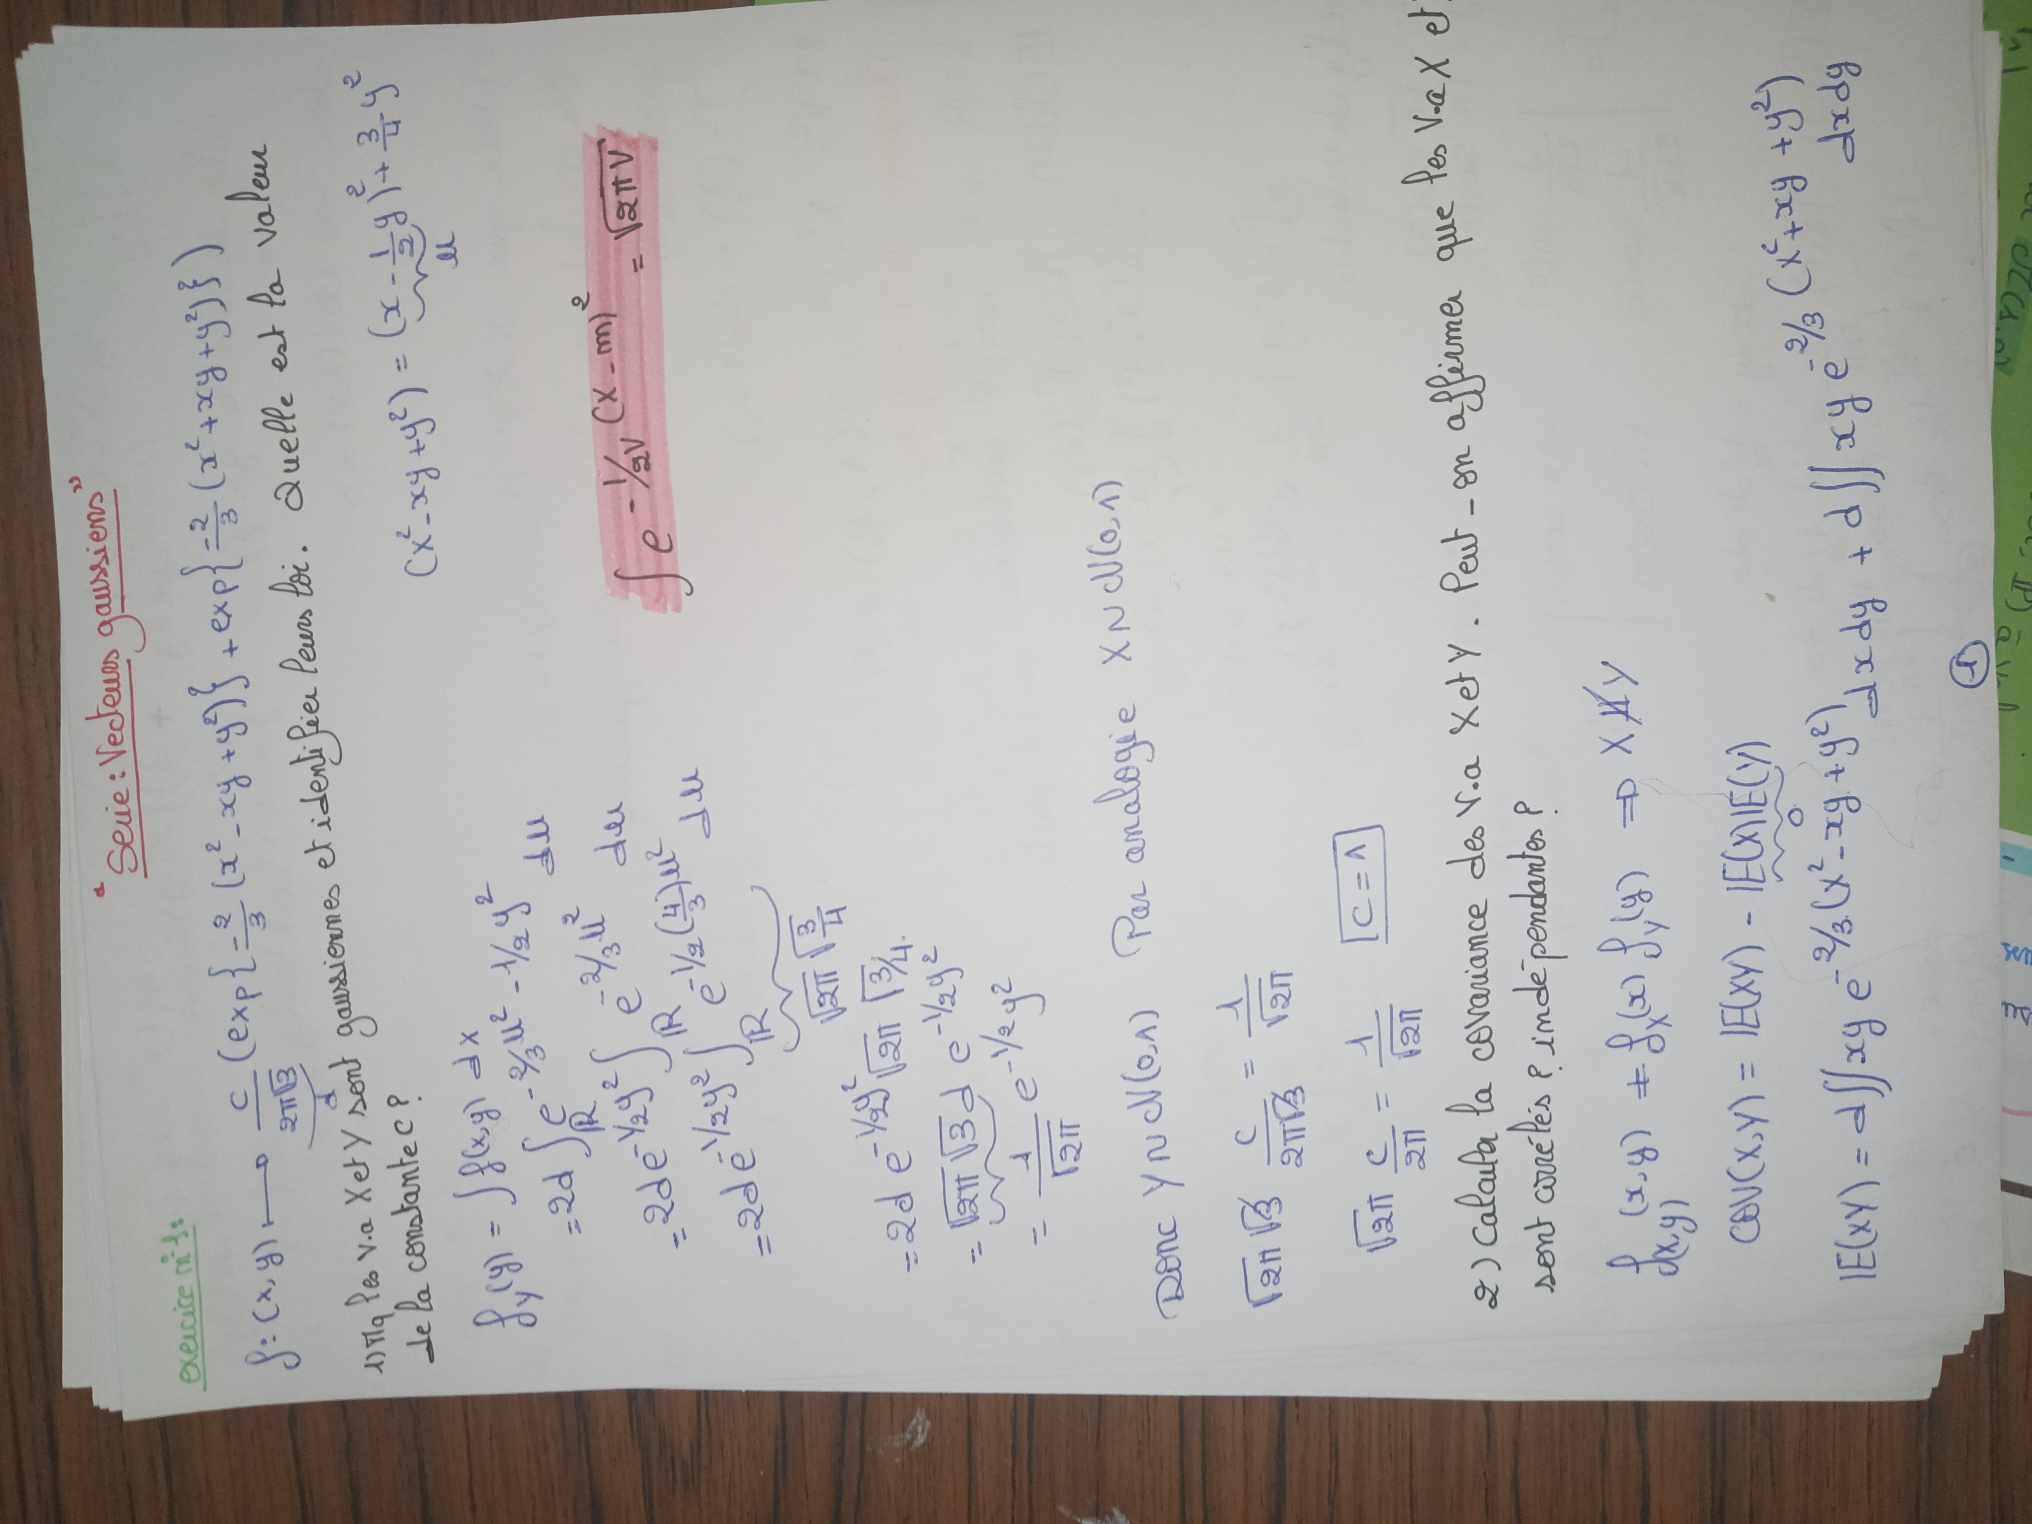 "Serie: Vecteurs gaussiens"
exercice n°1:
f: (x,y) ⟼ c/(2π√3) (exp{-2/3 (x²-xy+y²)} + exp{-2/3 (x²+xy+y²)})
d
1) Mq les v.a X et Y sont gaussiennes et identifier leurs loi. Quelle est la valeur
de la constante c ?
(x²-xy+y²) = (x - 1/2 y)² + 3/4 y²
u
f_Y(y) = ∫ f(x,y) dx
= 2d ∫_ℝ e^{-2/3 u² - 1/2 y²} du
= 2d e^{-1/2 y²} ∫_ℝ e^{-2/3 u²} du
∫ e^{-1/2V (x-m)²} = √(2πV)
= 2d e^{-1/2 y²} ∫_ℝ e^{-1/2 (4/3) u²} du
√2π √(3/4)
= 2d e^{-1/2 y²} √2π √3/4.
= √2π √3 d e^{-1/2 y²}
= 1/√2π e^{-1/2 y²}
Donc Y ~ N(0,1) Par analogie X ~ N(0,1)
√2π √3 c/(2π√3) = 1/√2π
√2π c/2π = 1/√2π c = 1
2) Calculer la covariance des v.a X et Y. Peut-on affirmer que les v.a X et
sont corrélés ? indépendantes ?
f_(x,y) (x,y) ≠ f_X(x) f_Y(y) ⇒ X ⫫̸ Y
COV(X,Y) = IE(XY) - IE(X)IE(Y)
0
IE(XY) = d∬xy e^{-2/3 (x²-xy+y²)} dxdy + d∬ xy e^{-2/3 (x²+xy+y²)} dxdy
1